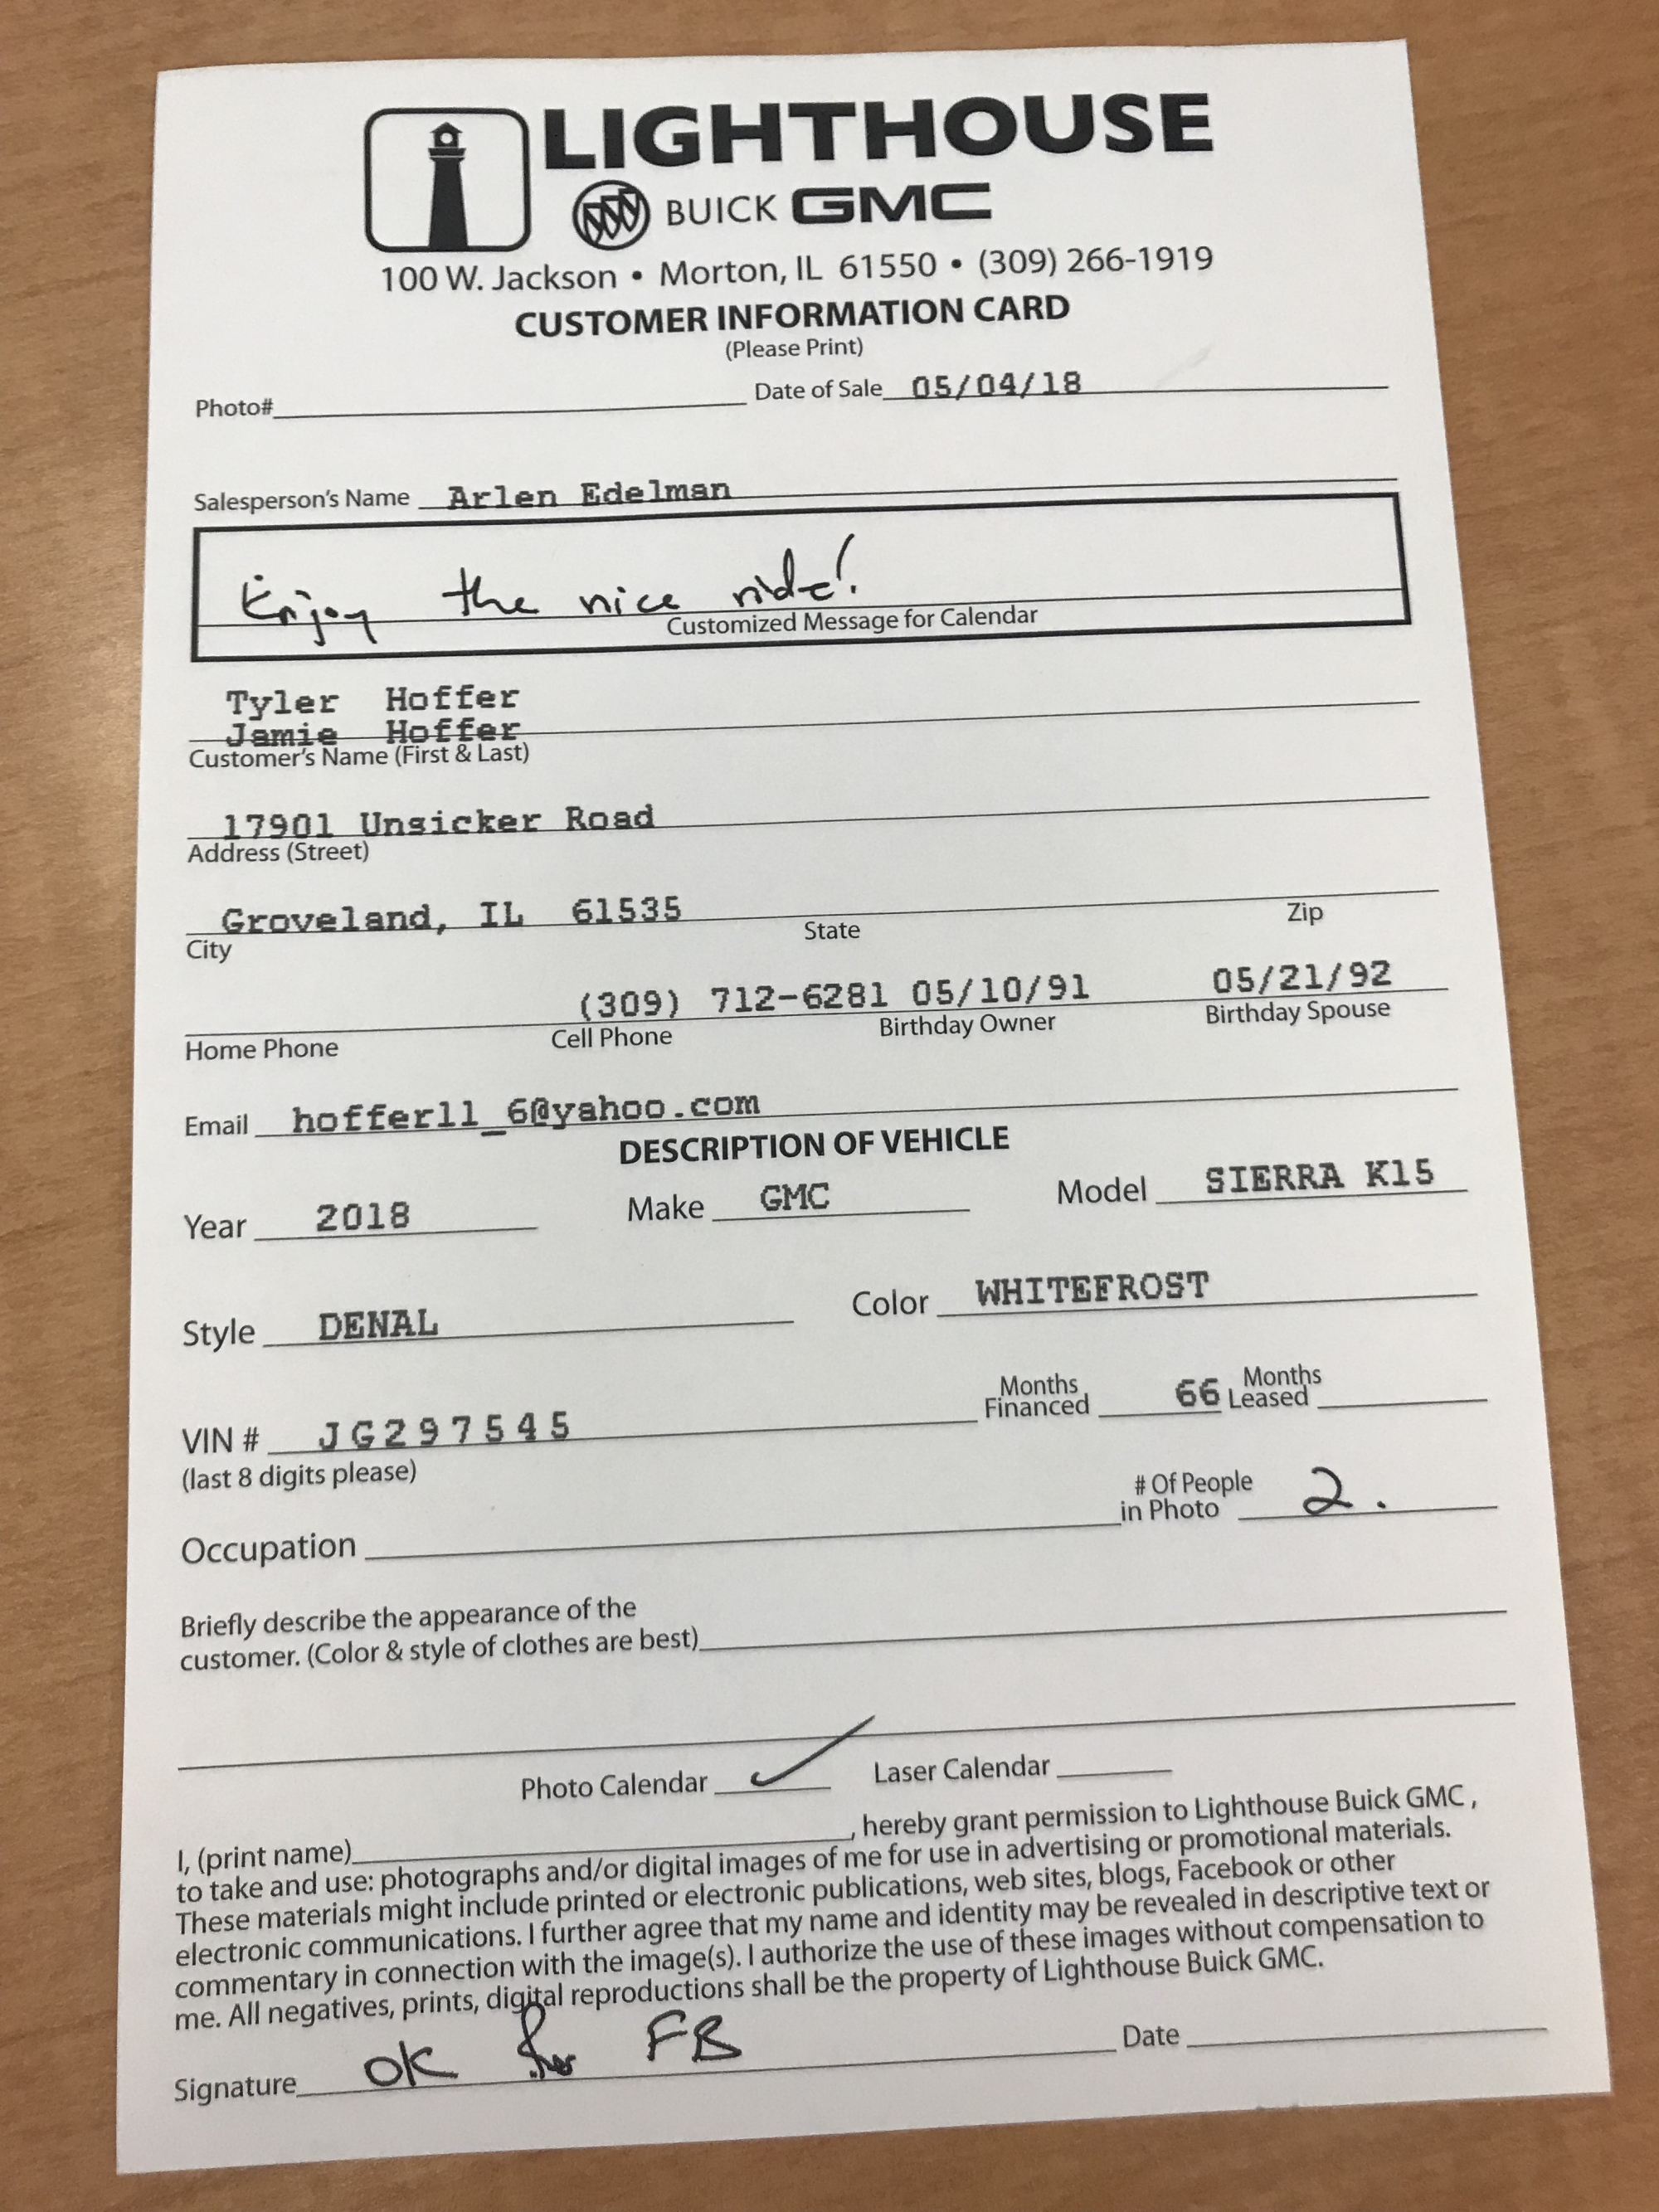 LIGHTHOUSE
BUICK GMC
100 W. Jackson • Morton, IL 61550 • (309) 266-1919
CUSTOMER INFORMATION CARD
(Please Print)
Photo# Date of Sale 05/04/18
Salesperson's Name Arlen Edelman
Enjoy the nice ride!
Customized Message for Calendar
Tyler Hoffer
Jamie Hoffer
Customer's Name (First & Last)
17901 Unsicker Road
Address (Street)
Groveland, IL 61535
City State Zip
(309) 712-6281 05/10/91 05/21/92
Home Phone Cell Phone Birthday Owner Birthday Spouse
Email hoffer11_6@yahoo.com
DESCRIPTION OF VEHICLE
Year 2018 Make GMC Model SIERRA K15
Style DENAL Color WHITEFROST
VIN # JG297545 Months Financed 66 Months Leased
(last 8 digits please)
Occupation # Of People in Photo 2.
Briefly describe the appearance of the
customer. (Color & style of clothes are best)
Photo Calendar ✓ Laser Calendar
I, (print name) , hereby grant permission to Lighthouse Buick GMC ,
to take and use: photographs and/or digital images of me for use in advertising or promotional materials.
These materials might include printed or electronic publications, web sites, blogs, Facebook or other
electronic communications. I further agree that my name and identity may be revealed in descriptive text or
commentary in connection with the image(s). I authorize the use of these images without compensation to
me. All negatives, prints, digital reproductions shall be the property of Lighthouse Buick GMC.
Signature OK for FB Date